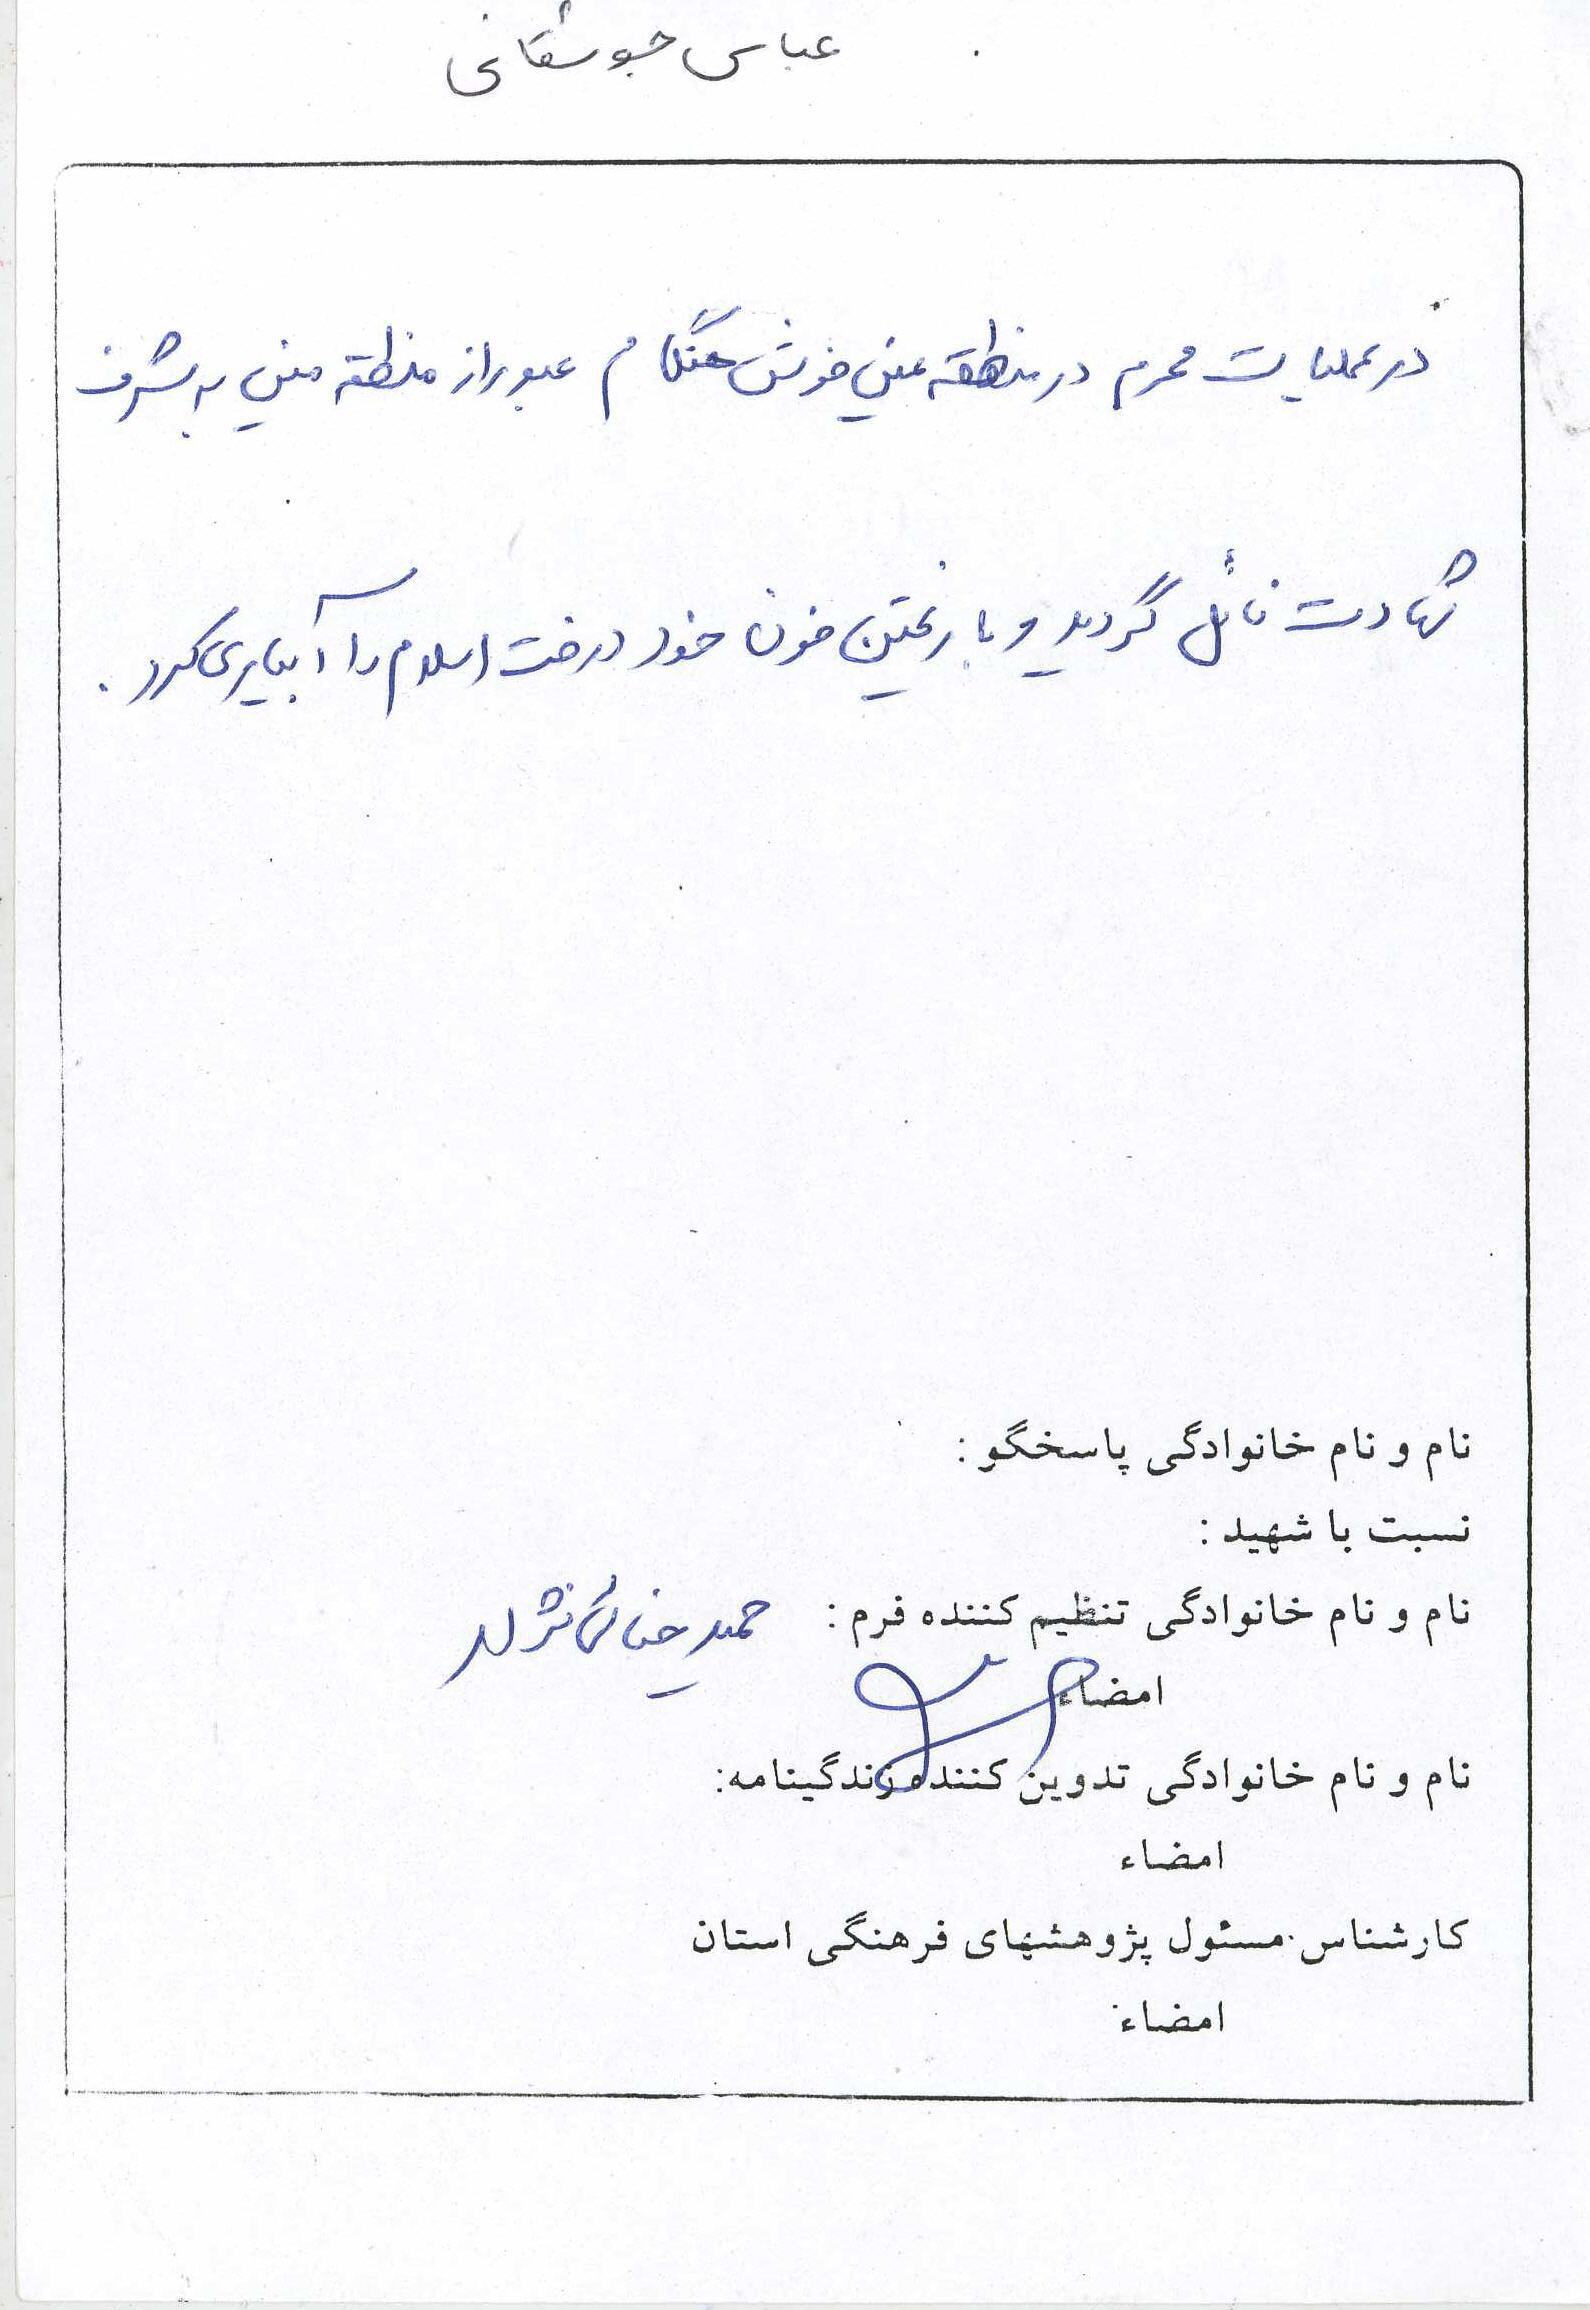 عباس جوشقانی
در عملیات محرم در منطقه عین خوش هنگام عبور از منطقه مین به شرف
شهادت نائل گردید و با ریختن خون خود درخت اسلام را آبیاری کرد.
نام و نام خانوادگی پاسخگو :
نسبت با شهید :
نام و نام خانوادگی تنظیم کننده فرم : حمید
امضاء
نام و نام خانوادگی تدوین کننده زندگینامه:
امضاء
کارشناس مسئول پژوهشهای فرهنگی استان
امضاء